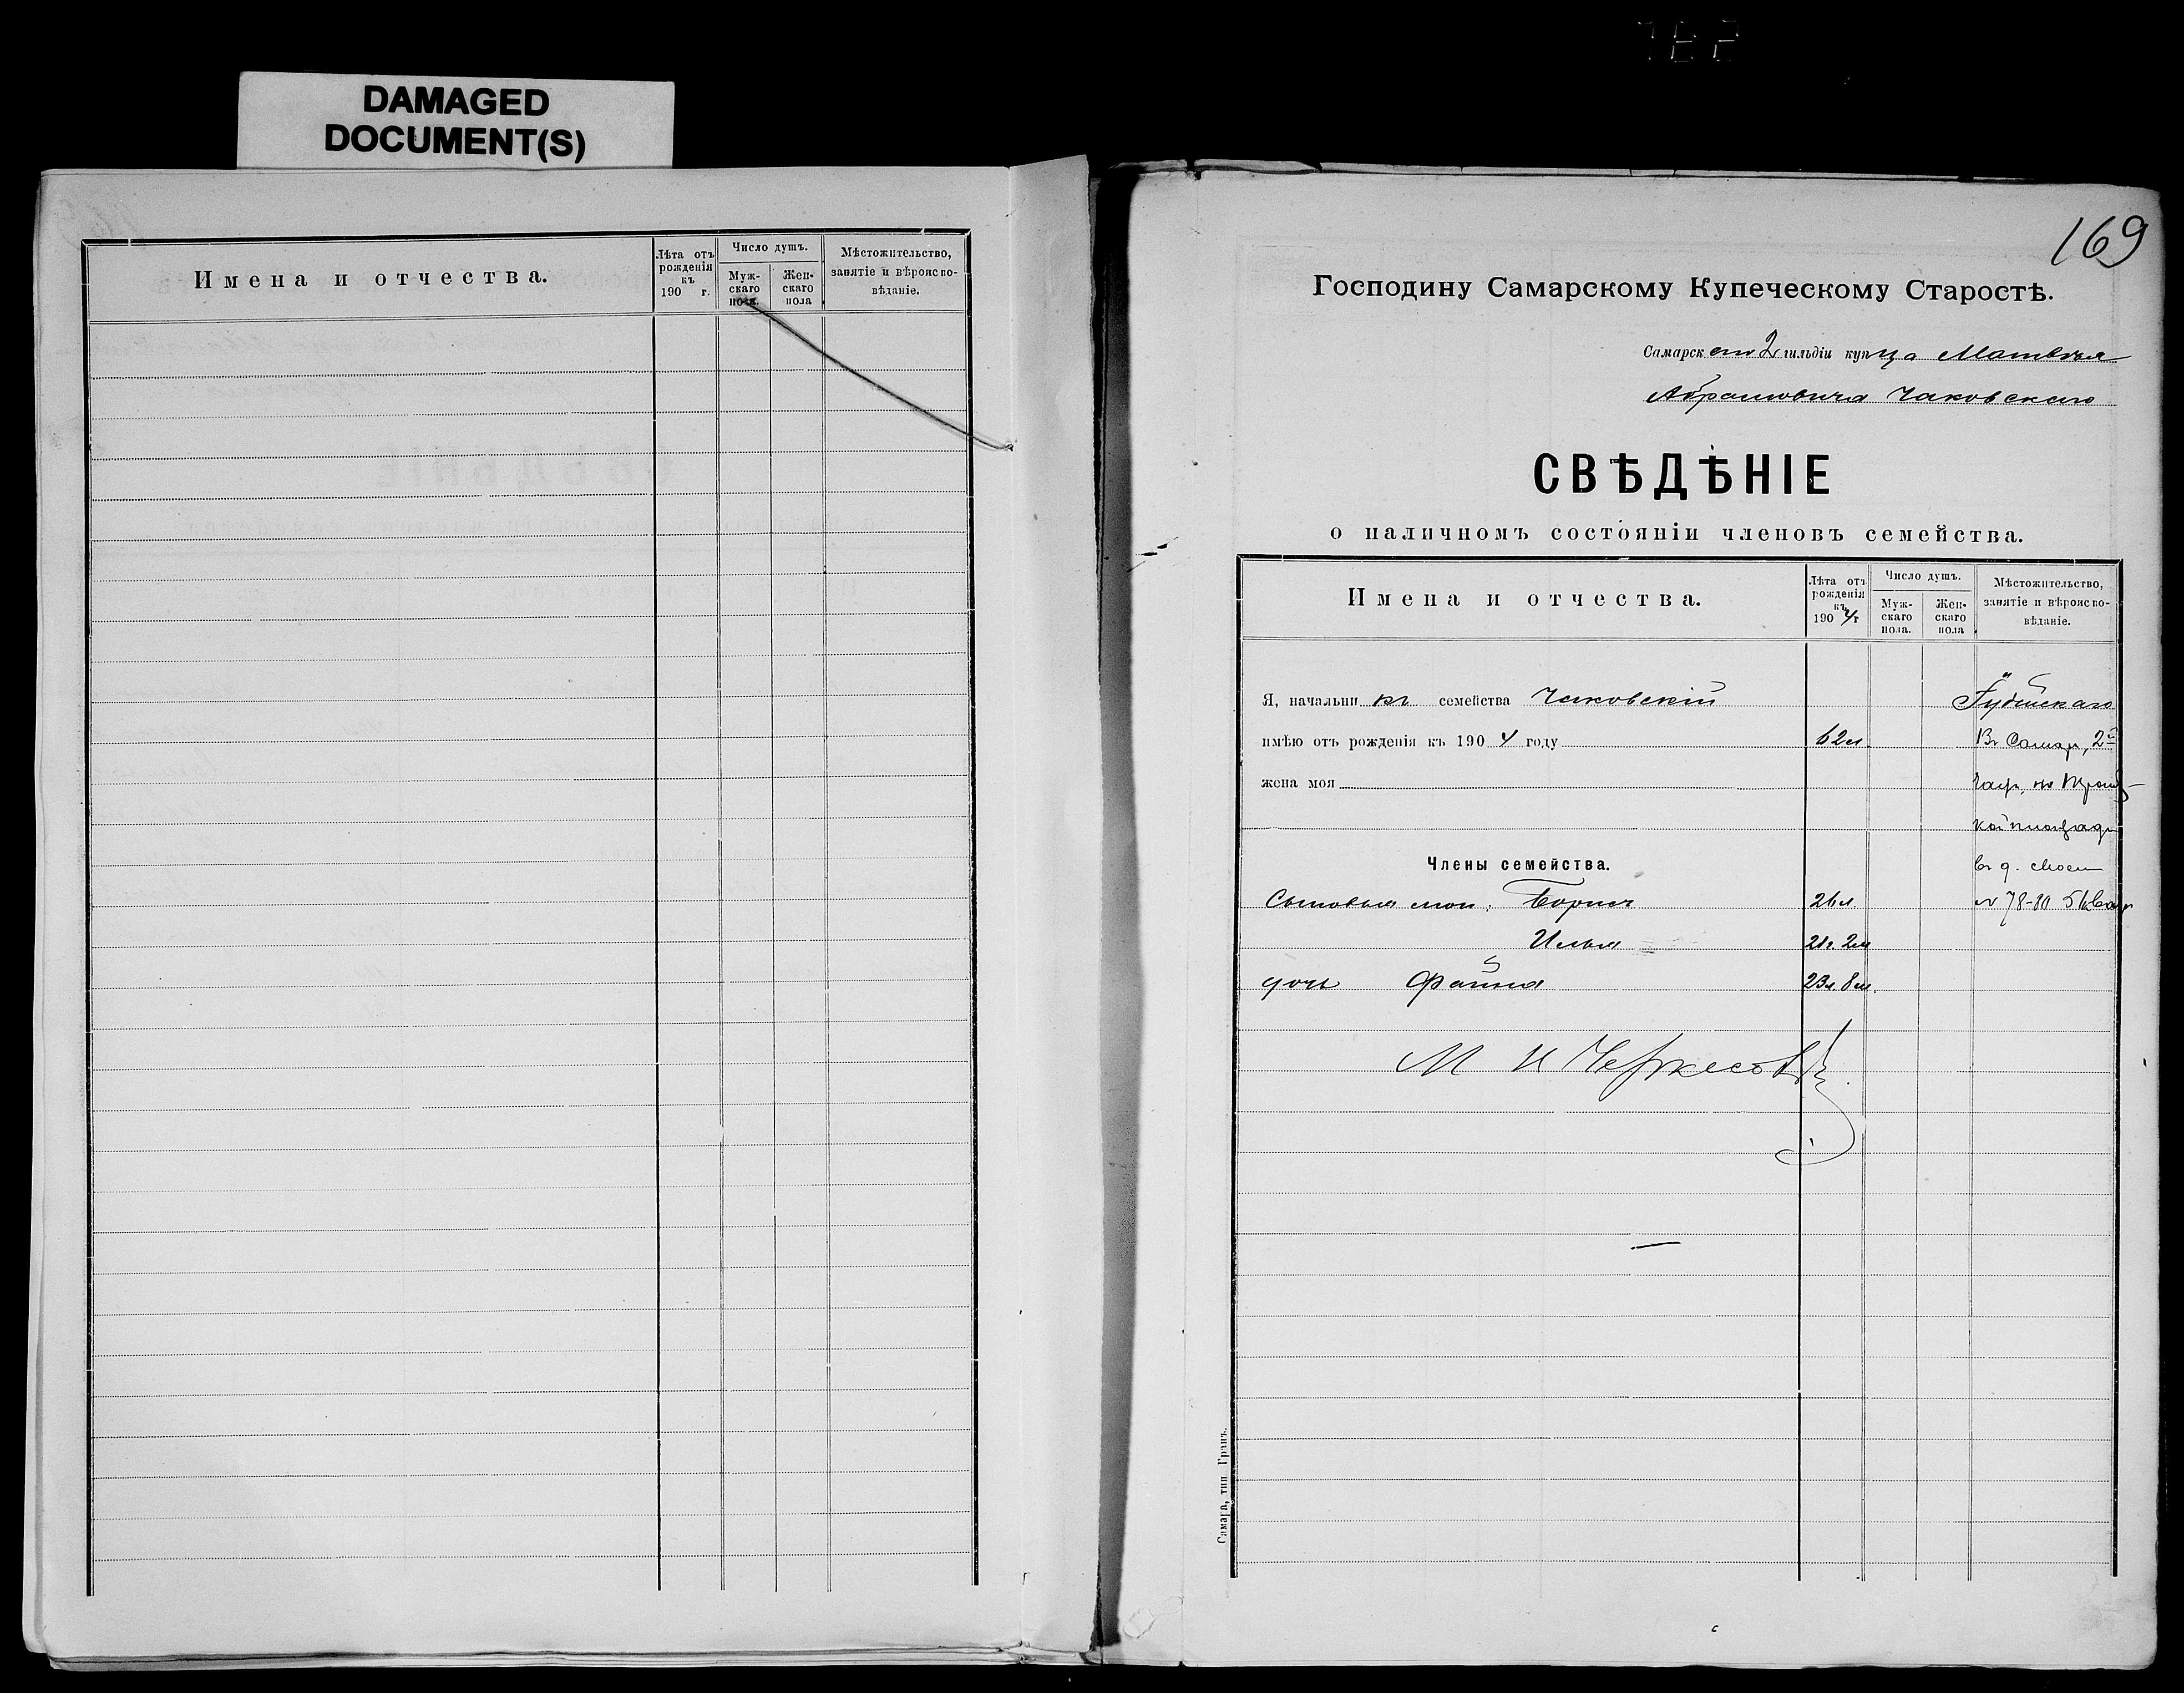 DAMAGED
DOCUMENT(S)
Имена и отчества.
Лѣта отъ рожденія къ 190 г.
Число душъ.
Муж-скаго пола.
Жен-скаго пола
Мѣстожительство, занятіе и вѣроиспо-вѣданіе.
169
Господину Самарскому Купеческому Старостѣ.
Самарскаго 2 гильдіи купца Матвѣя
Абрамовича Чаковскаго
СВѢДѢНІЕ
о наличномъ состояніи членовъ семейства.
Имена и отчества.
Лѣта отъ рожденія къ 1904 г
Число душъ.
Муж-скаго пола.
Жен-скаго пола
Мѣстожительство, занятіе и вѣроиспо-вѣданіе.
Я, начальникъ семейства Чаковскій
имѣю отъ рожденія къ 1904 году 62 л. Въ Самар, 2й
жена моя част. на Троиц-
кой площади
Члены семейства. въ д.
Сыновья мои: Борисъ 26 л. № 78-80
Илья 21 г. 2 м
дочь Фаина 23 л. 8 м.
М И Черкесовъ
Самара, тип. Гранъ.